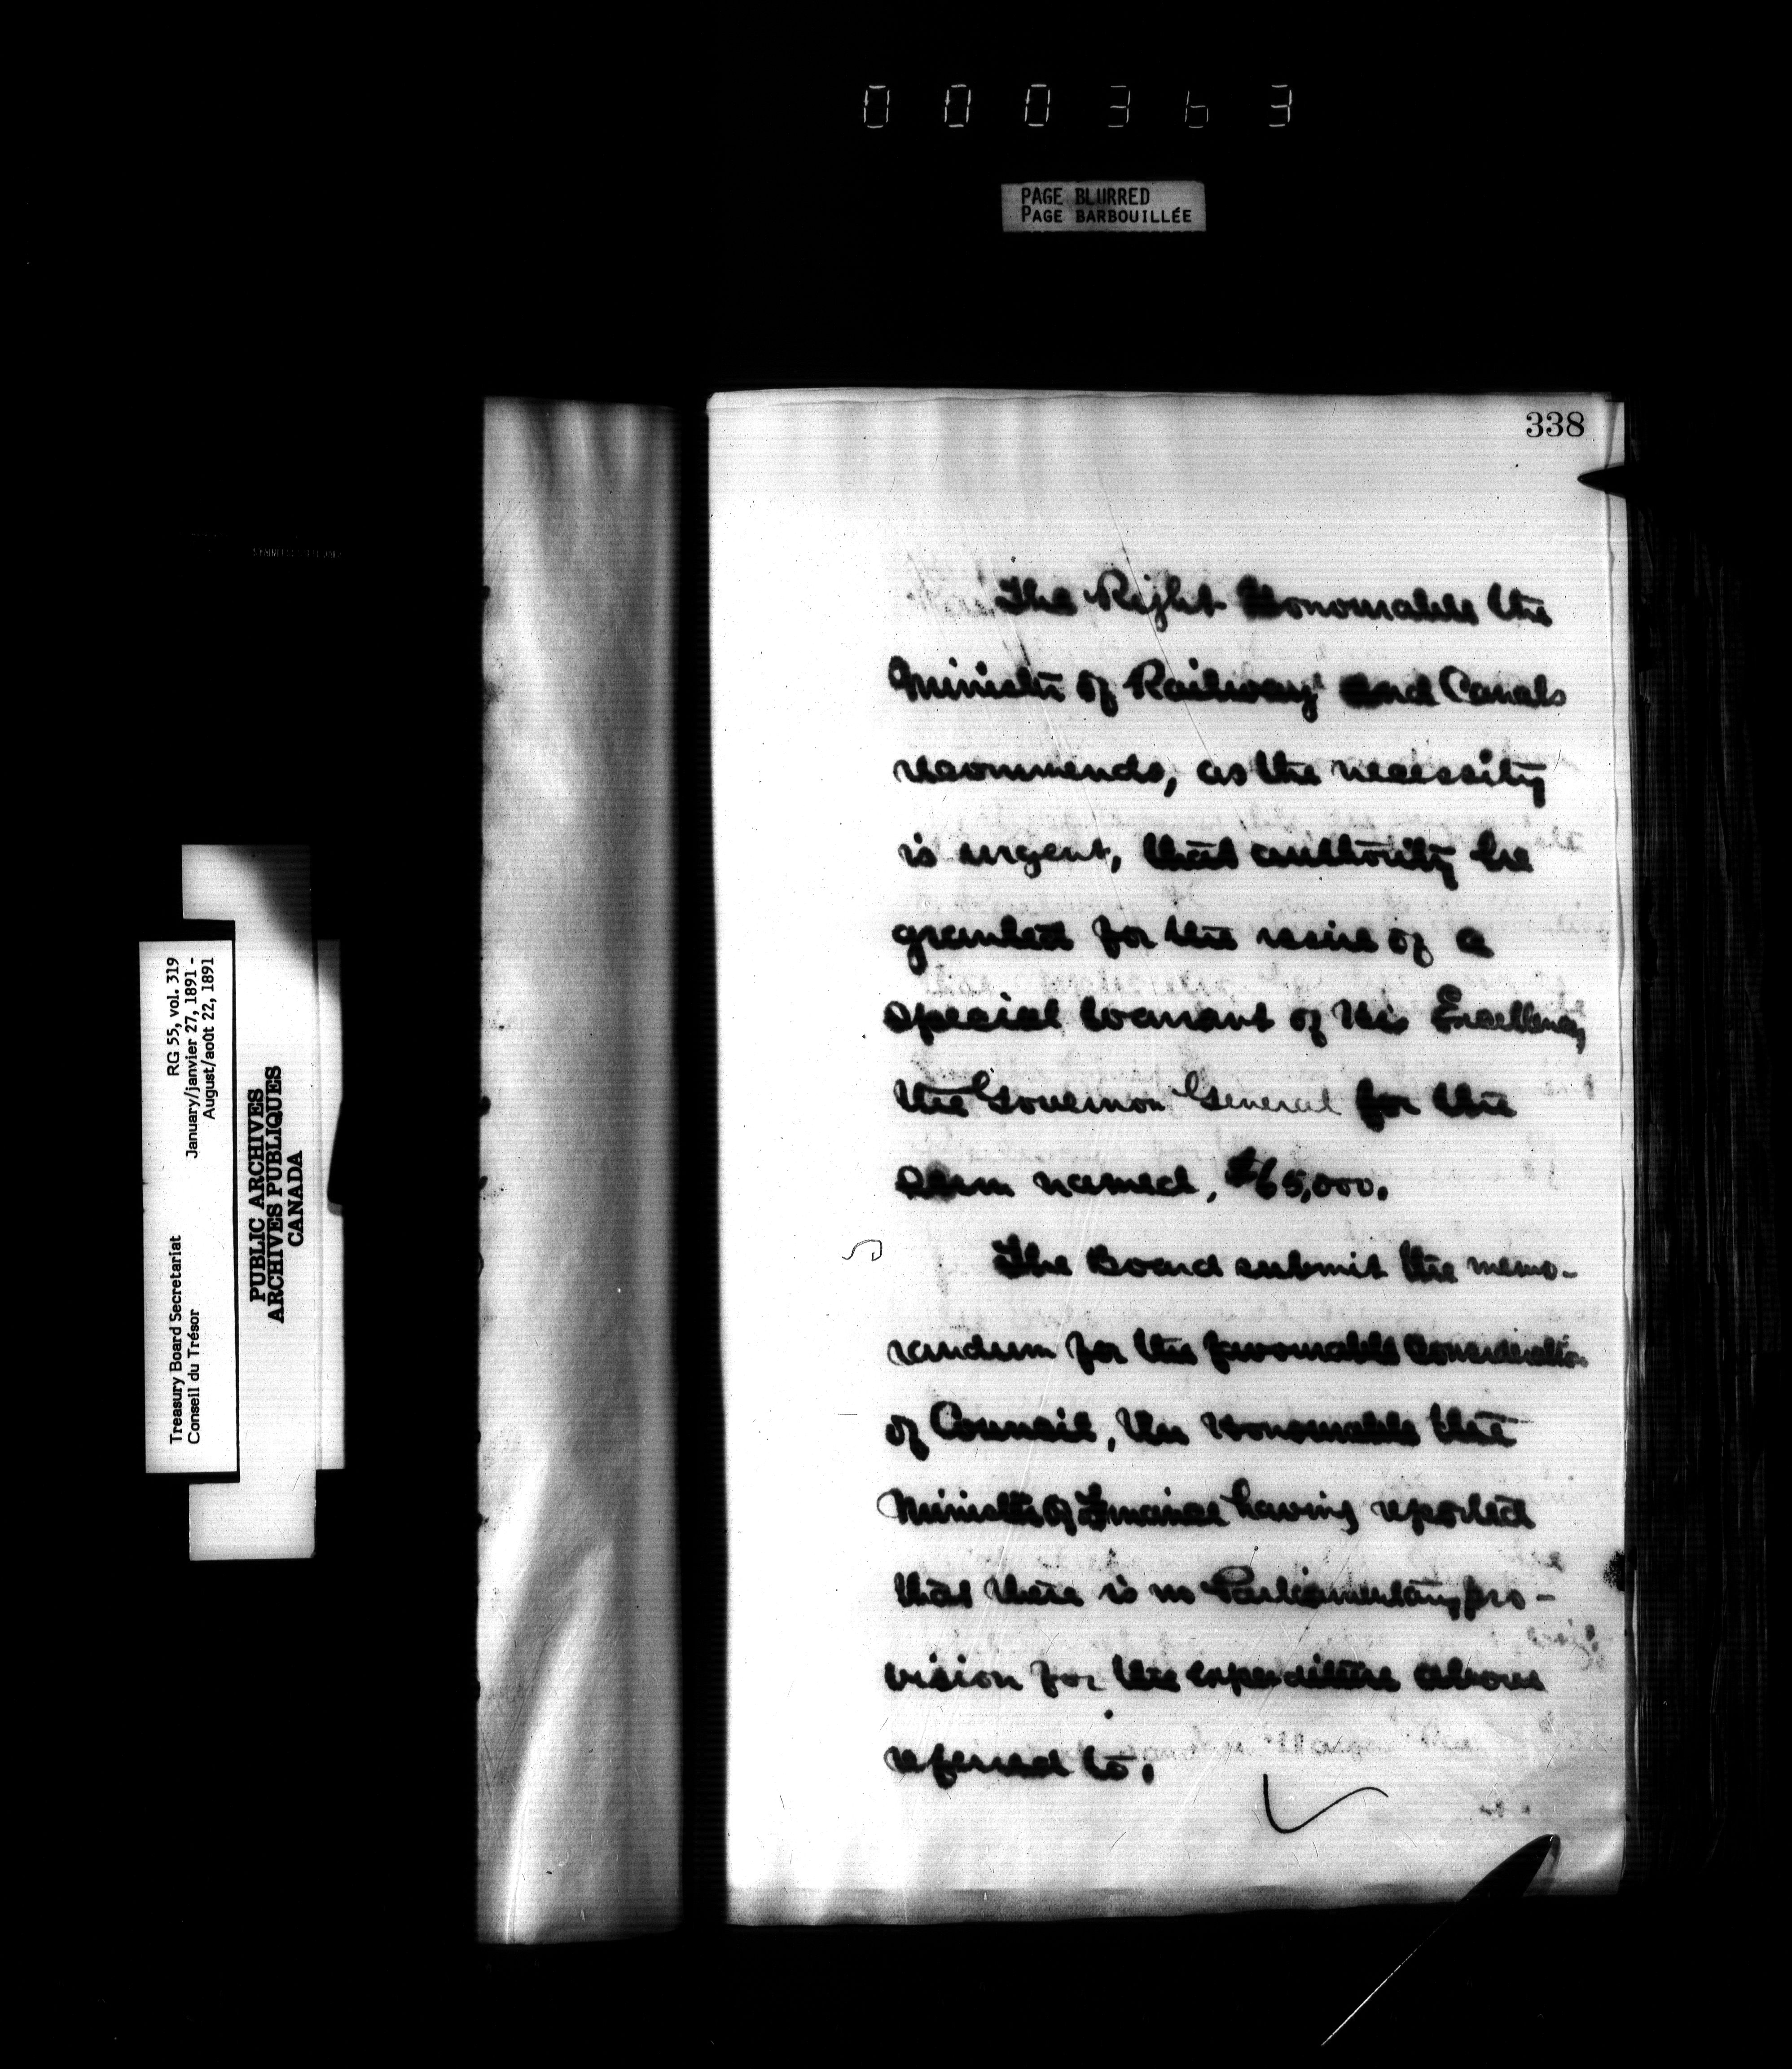 000363
PAGE BLURRED
PAGE BARBOUILLÉE
338
The Right Honourable the
Minister of Railways and Canals
recommends, as the necessity
is urgent, that authority be
granted for the issue of a
special warrant of His Excellency
the Governor General for the
sum named, $65,000.
The Board submit the memo-
randum for the favourable consideration
of Council, the Honourable the
Minister of Finance having reported
that there is no Parliamentary pro-
vision for the expenditure above
referred to.
RG 55, vol. 319
January/janvier 27, 1891 -
August/août 22, 1891
Treasury Board Secretariat
Conseil du Trésor
PUBLIC ARCHIVES
ARCHIVES PUBLIQUES
CANADA